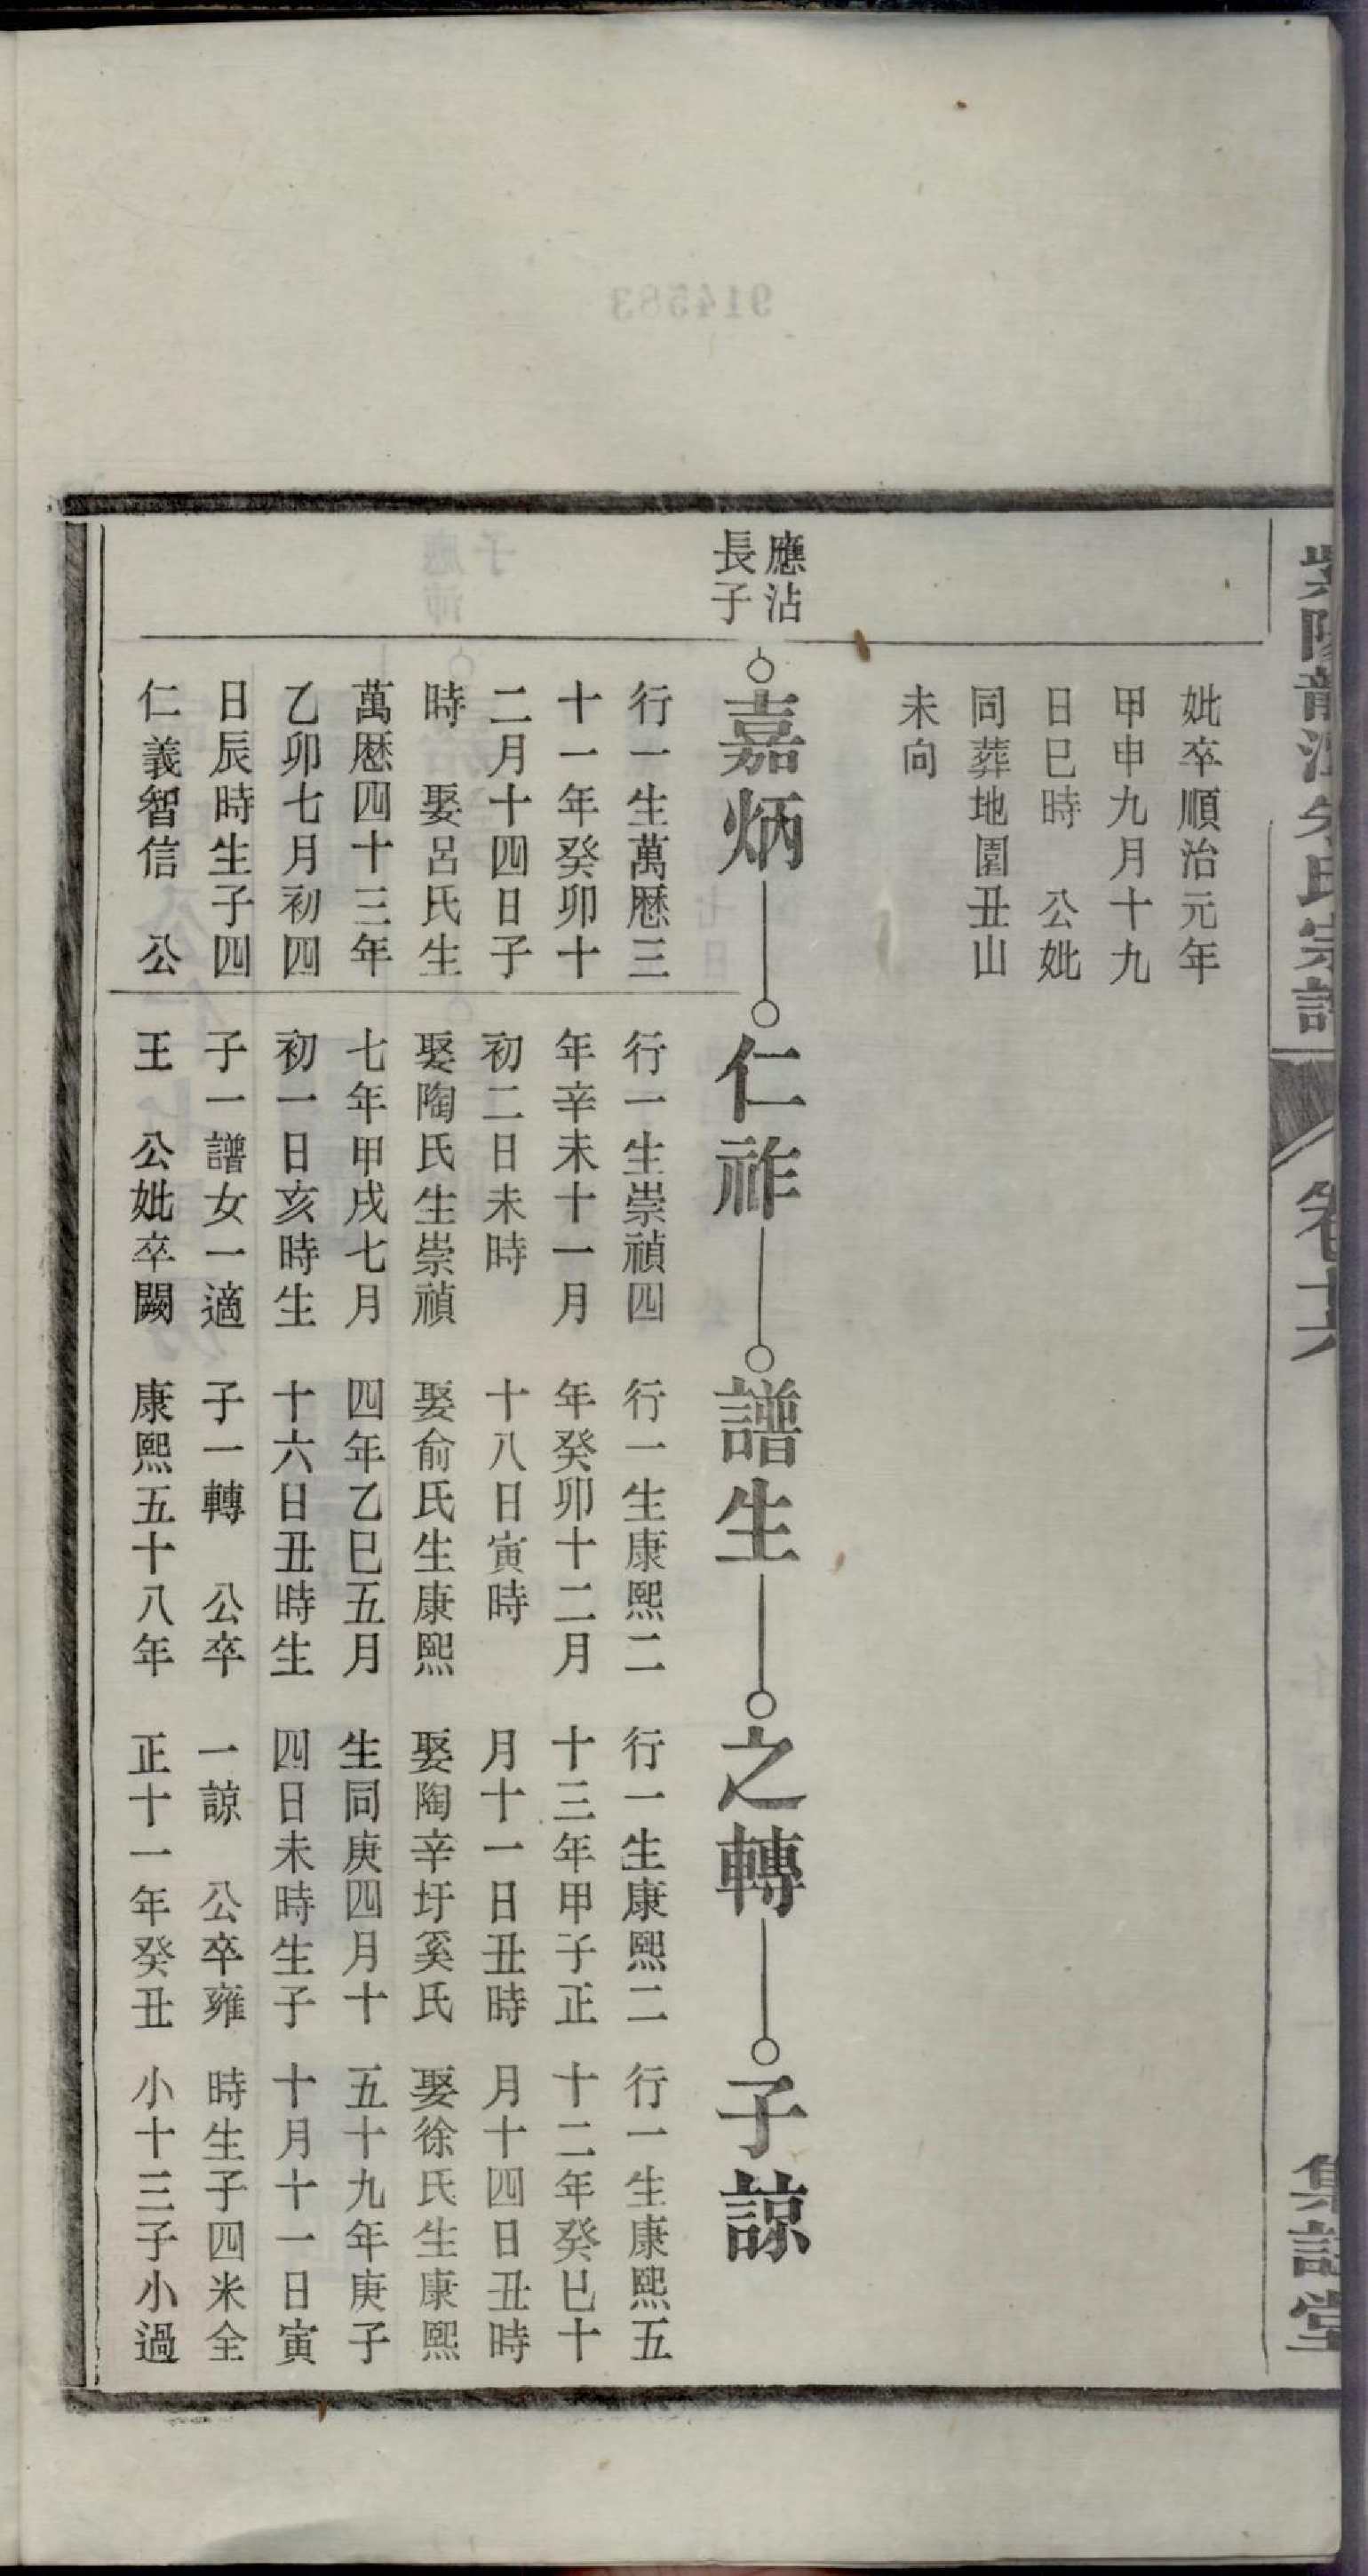 紫陽龍溪朱氏宗譜
卷十六
集詩堂
妣卒順治元年
甲申九月十九
日巳時　公妣
同葬地園丑山
未向
應沾
長子
嘉炳
行一生萬曆三
十一年癸卯十
二月十四日子
時　娶呂氏生
萬曆四十三年
乙卯七月初四
日辰時生子四
仁義智信　公
仁祚
行一生崇禎四
年辛未十一月
初二日未時
娶陶氏生崇禎
七年甲戌七月
初一日亥時生
子一譜女一適
王　公妣卒闕
譜生
行一生康熙二
年癸卯十二月
十八日寅時
娶俞氏生康熙
四年乙巳五月
十六日丑時生
子一轉　公卒
康熙五十八年
之轉
行一生康熙二
十三年甲子正
月十一日丑時
娶陶辛圩奚氏
生同庚四月十
四日未時生子
一諒　公卒雍
正十一年癸丑
子諒
行一生康熙五
十二年癸巳十
月十四日丑時
娶徐氏生康熙
五十九年庚子
十月十一日寅
時生子四米全
小十三子小過